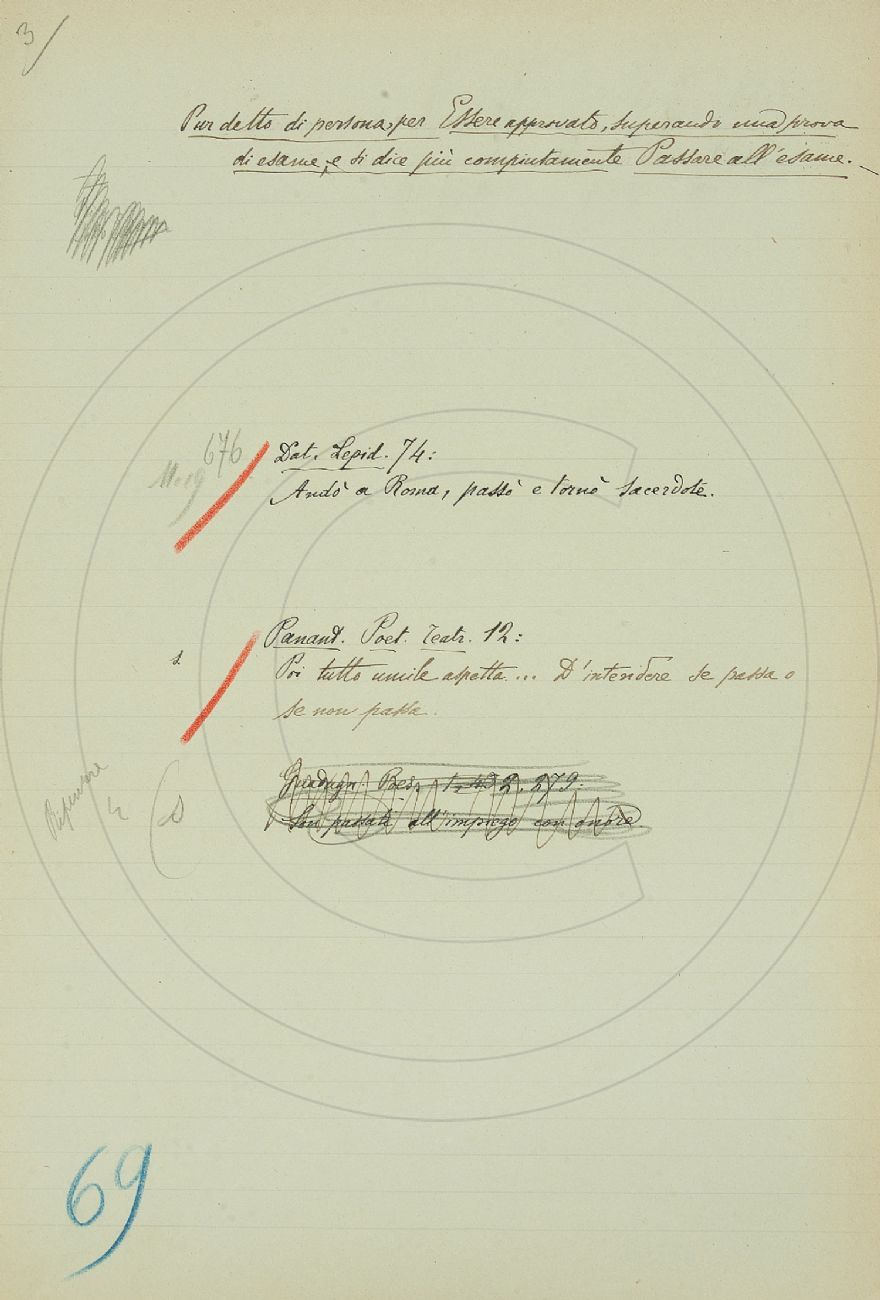 3/
Pur detto di persona, per Essere approvato, superando una prova
di esame, e si dice più compiutamente Passare all'esame.
676
Dat. Lepid. 74:
Andò a Roma, passò e tornò sacerdote.
Panant. Poet. Teatr. 12:
s
Poi tutto umile aspetta... D'intendere se passa o
se non passa.
Guadagn. Poes. 2. 279:
Son passati all'impiego con onore.
s
69